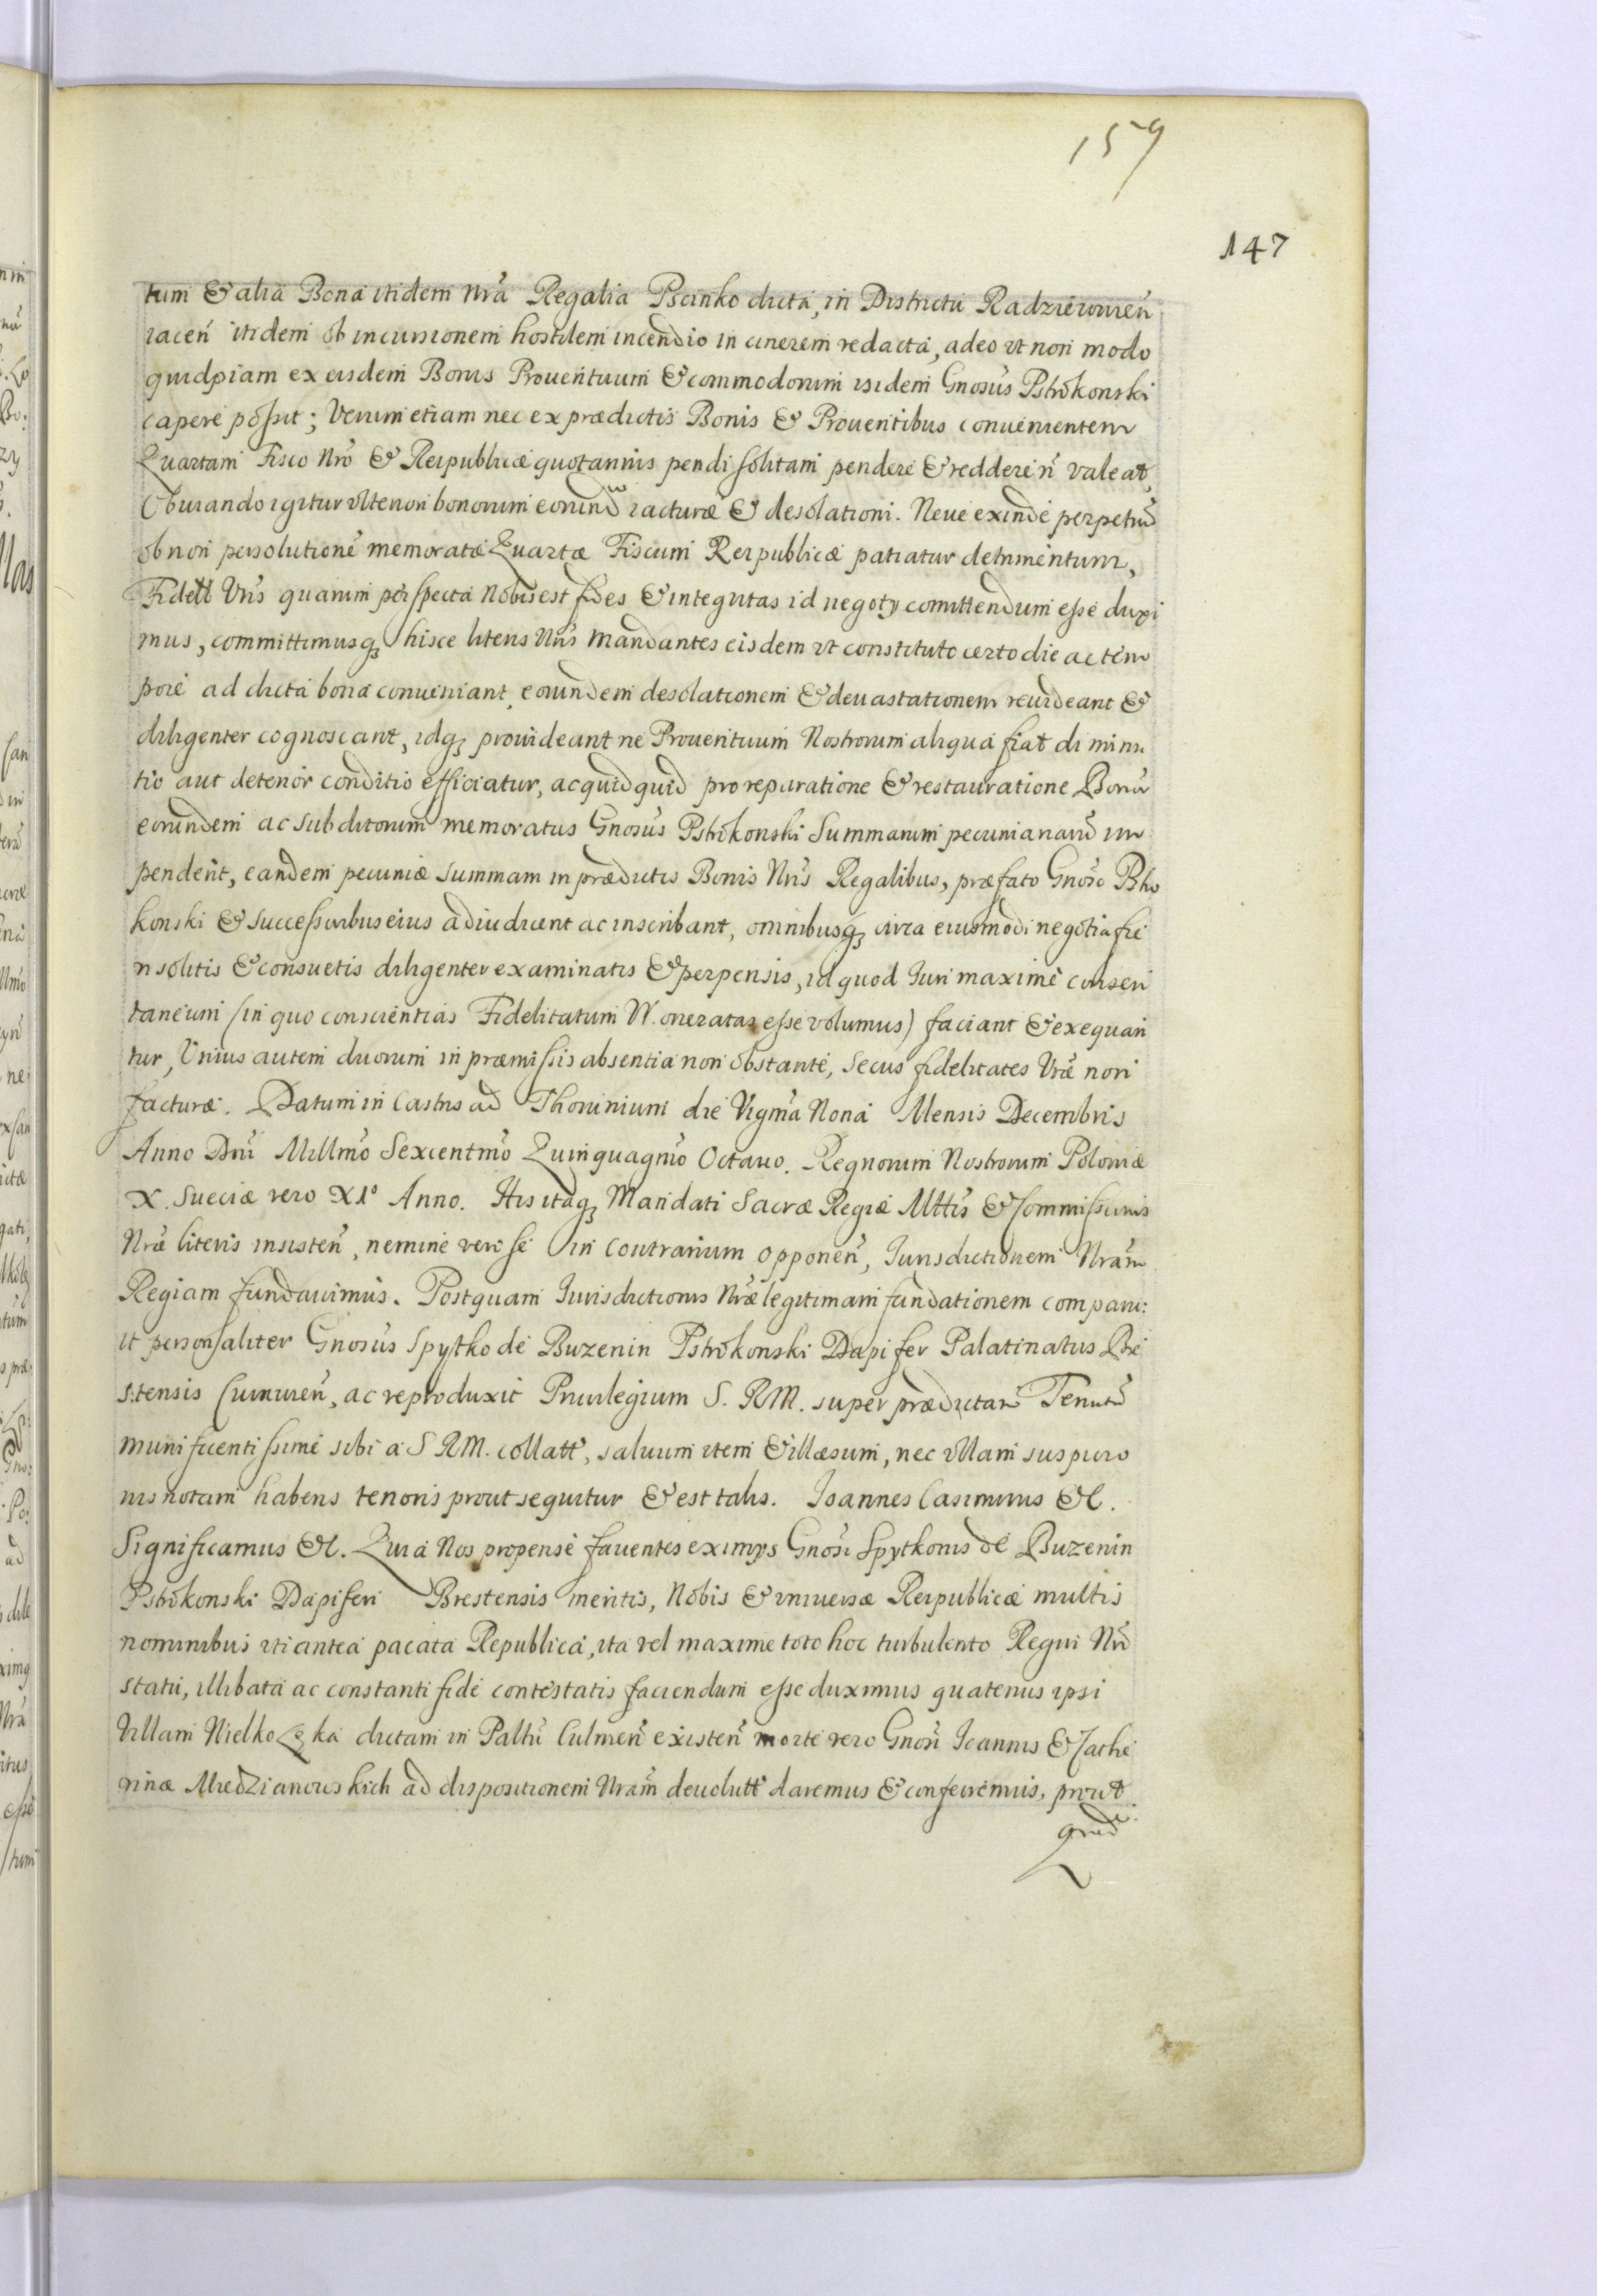 159
147
tum & alia Bona itidem nrã Regalia Pscinko dicta, in Districtu Radzieiowień
iaceñ itidem ob incursionem hostilem incendio in cinerem redacta, adeo vt non modo
quidpiam ex eisdem Bonis Prouentuum & commodorum isidem Gnosus Pstrokonski
capere possit; Verum etiam nec ex prædictis Bonis & Prouentibus conuenientem
Quartam Fisco Nrõ & Reipublicæ quotannis pendi solitam pendere & reddere ñ valeat,
Obuiando igitur vlteriori bonorum eorund iacturæ & desolationi. Neue exinde perpetuũ
ob non persolutionẽ memoratæ Quartæ Fiscum Reipublicæ patiatur detrimentum,
Fidett Vris quarum perspecta nobis est fides & integritas id negoty comittendum esse duxi
mus, committimusq3 hisce literis Nris mandantes eisdem vt constituto certo die ac tem
pore ad dicta bona conueniant, eorundem desolationem & deuastationem reuideant &
diligenter cognoscant, idq3 prouideant ne Prouentuum Nostrorum aliqua fiat diminu
tio aut deterior conditio efficiatur, ac quidquid pro reparatione & restauratione Bonor
eorundem ac subditorum memoratus Gnosus Pstrokonski Summarum pecuniariarũ im
penderit, eandem pecuniæ summam in prædictis Bonis Nris Regalibus, præfato Gnoso Pstro
konski & successoribus eius adiudicent ac inscribant, omnibusq3 circa eiusmodi negotia fie
ri solitis & consuetis diligenter examinatis & perpensis, id quod Juri maximè consen
taneum (in quo conscientias Fidelitatum W. oneratas esse volumus) faciant & exequan
tur, Vnius autem duorum in præmissis absentia non obstante, secus fidelitates Vræ non
facturæ. Datum in Castris ad Thorunium die Vigma Nona Mensis Decembris
Anno Dni Millmõ Sexcentmõ Quinquagmõ Octauo. Regnorum Nostrorum Poloniæ
X. Sueciæ vero XIº Anno. His itaq3 Mandati Sacræ Regiæ Mttis & Commissionis
Nræ literis insisteñ, nemine vero se in contrarium opponeñ, Jurisdictionem Nram
Regiam fundauimus. Postquam Jurisdictionis Nræ legitimam fundationem comparu:
it personaliter Gnosus Spytko de Buzenin Pstrokonski Dapifer Palatinatus Bre
stensis Cuiauieñ, ac reproduxit Priuilegium S. RM. super prædictam Tenutã
munificentissimè sibi a S RM. collatt, saluum item & illæsum, nec vllam suspicio
nis notam habens tenoris prout sequitur & est talis. Joannes Casimirus &c.
Significamus &c. Quia Nos propensè fauentes eximys Gnosi Spytkonis de Buzenin
Pstrokonski Dapiferi Brestensis meritis, Nobis & vniuersæ Reipublicæ multis
nominibus vti antea pacata Republica, ita vel maxime toto hoc turbulento Regni Nri
statu, illibata ac constanti fide contestatis faciendum esse duximus quatenus ipsi
Villam Nielkoźka dictam in Paltu Culmeñ existeñ morte vero Gnorũ Joannis & Cathe
rinæ Miedzianowskich ad dispositionem Nram deuolutt daremus & conferremus, prout